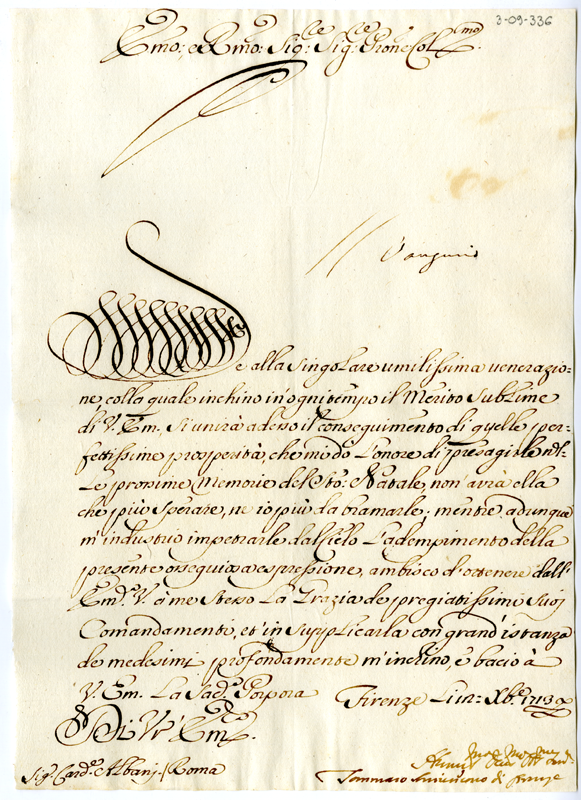 3-09-336
Emo: e Rmo: Sig:re Sig:re Prone Col:mo
Se alla singolare umilissima venerazio-
ne, colla quale inchino in'ogni tempo il Merito sublime
di V. Em., si unirà adesso il conseguimento di quelle per-
fettissime prosperità, che mi do l'onore di presagirle nel-
le prossime Memorie del Sto: Natale, non'avrà ella
che più sperare, ne io più da bramarle; mentre adunque
m'industrio impetrarle dal Cielo l'adempimento della
presente ossequiosa espressione, ambisco d'ottenere dall'
Em.a V. à me stesso la Grazia de pregiatissimi suoi
Comandamenti, et'in supplicarla con grand'istanza
de medesimi profondamente m'inchino, e bacio à
V. Em. la Sad.a Porpora Firenze li Xbre 1713
Di Vr'Em.a
Sig.r Card.e Albani / Roma
Tommaso di